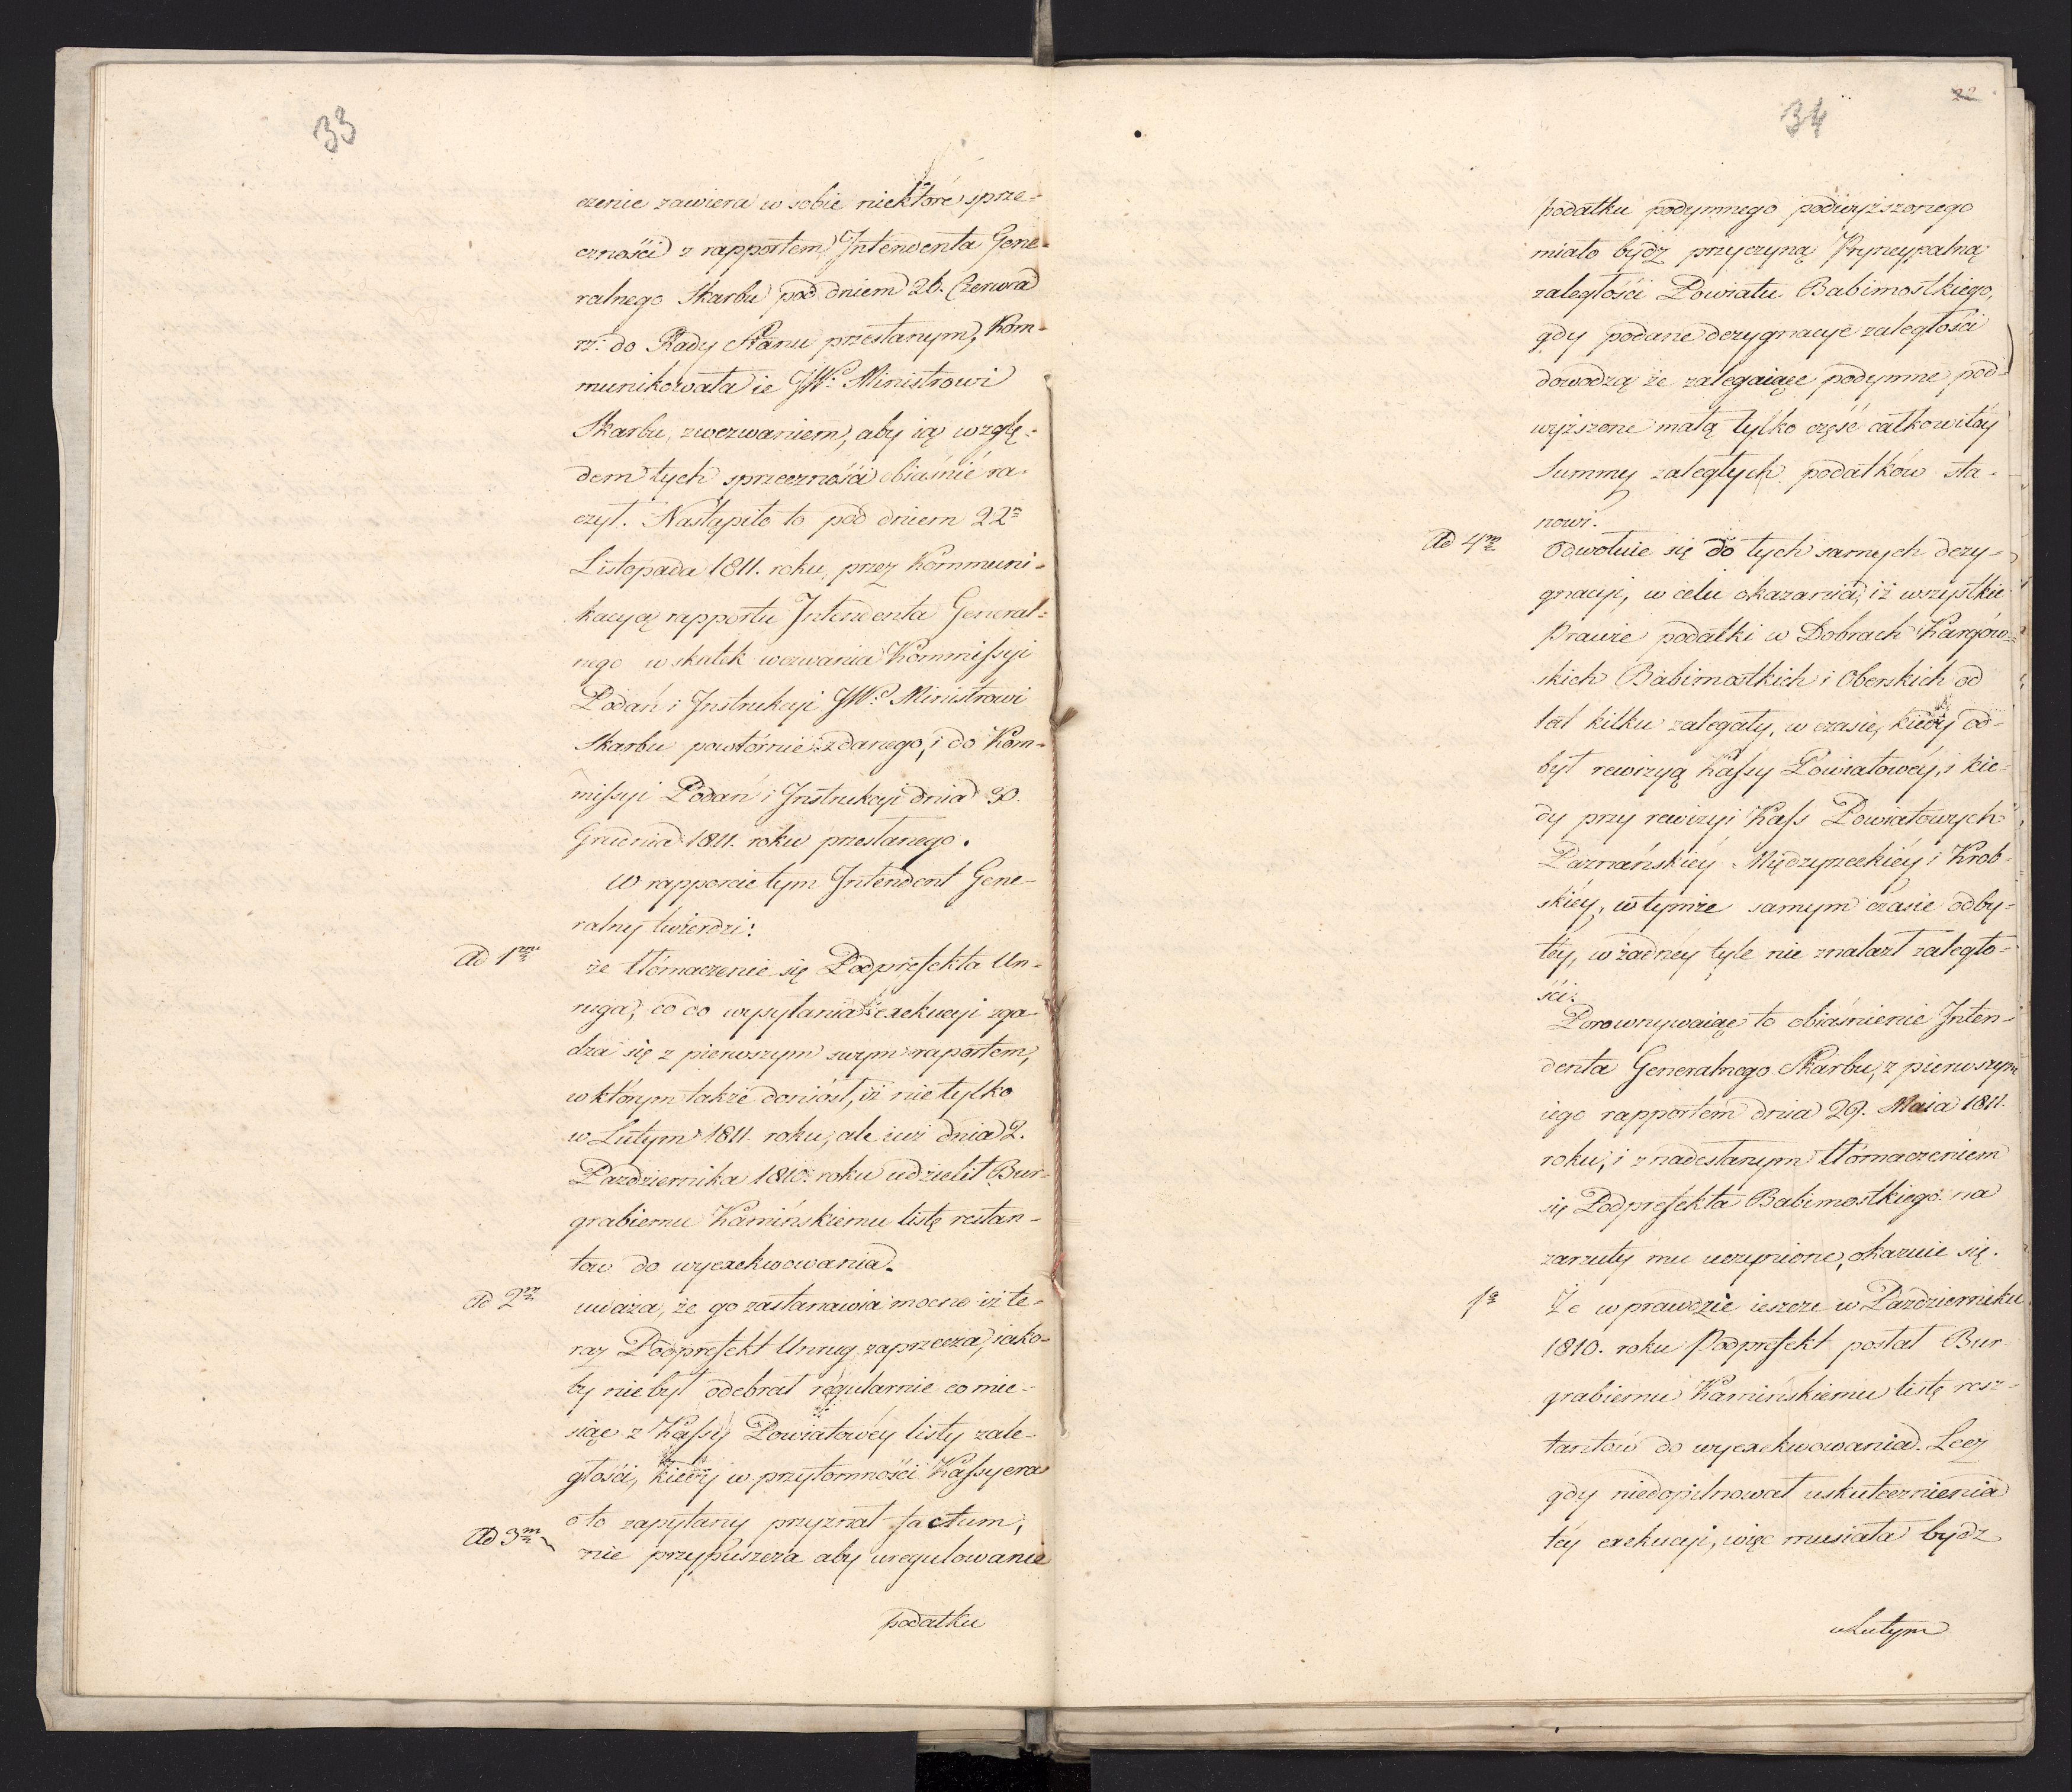 33
czenie zawiera w sobie niektóre sprze=
czności z rapportem Intendenta Gene=
ralnego Skarbu pod dniem 26. Czerwca
rz: do Rady Stanu przesłanym, Kom=
munikowała ie JW: Ministrowi
Skarbu, zwezwaniem, aby ią wzglę=
dem tych sprzeczności obiaśnić ra=
czył. Nastąpiło to pod dniem 22m
Listopada 1811. roku, przez Kommuni=
kacyą rapportu Intendenta General=
nego w skutek wezwania Kommissyi
Podań i Instrukcyi JW: Ministrowi
Skarbu powtórnie zdanego, i do Kom=
missyi Podań i Instrukcyi dnia 30.
Grudnia 1811. roku przesłanego.
W rapporcie tym Intendent Gene=
ralny twierdzi:
Ad 1m że tłómaczenie się Podprefekta Un=
ruga, co do wysyłania exekucyi zga=
dza się z pierwszym swym raportem,
w którym także doniósł, iż nie tylko
w Lutym 1811. roku, ale iuż dnia 2.
Pazdziernika 1810. roku udzielił Bur=
grabiemu Kamińskiemu listę restan=
tów do wyexekwowania.
Ad 2m uważa, że go zastanawia mocno iż te=
raz Podprefekt Unrug zaprzecza, iako=
by nie był odebrał regularnie co mie=
siąc z Kassy Powiatowéy listy zale=
głości, kiedy w przytomności Kassyera
o to zapytany przyznał factum,
Ad 3m nie przypuszcza aby uregulowanie
podatku
34
22
podatku podymnego podwyższonego
miało bydź przyczyną Pryncypalną
zaległości Powiatu Babimostkiego,
gdy podane dezygnacye zaległości
dowodzą że zalegaiące podymne pod=
wyższone małą tylko część całkowitéy
Summy zaległych podatków sta=
nowi.
Ad 4m Odwołuie się do tych samych dezy=
gnacyi, w celu okazania, iż wszystkie
prawie podatki w Dobrach Kargów=
skich Babimostkich i Oberskich od
lat kilku zalegały, w czasie, kiedy od=
był rewizyą Kassy Powiatowéy, i kie=
dy przy rewizyi Kass Powiatowych
Poznańskiéy Międzyrzeckiéy i Krob=
skiéy, w tymże samym czasie odby=
téy, w żadnéy tyle nie znalazł zaległo=
ści.
Porownywaiąc to obiaśnienie Inten=
denta Generalnego Skarbu, z pierwszym
iego rapportem dnia 29. Maia 1811.
roku, i z nadesłanym tłómaczeniem
się Podprefekta Babimostkiego na
zarzuty mu uczynione, okazuie się.
1o Że wprawdzie ieszcze w Pazdzierniku
1810. roku Podprefekt posłał Bur=
grabiemu Kamińskiemu listę resz=
tantów do wyexekwowania. Lecz
gdy niedopilnował uskutecznienia
téy exekucyi, więc musiała bydź
w Lutym